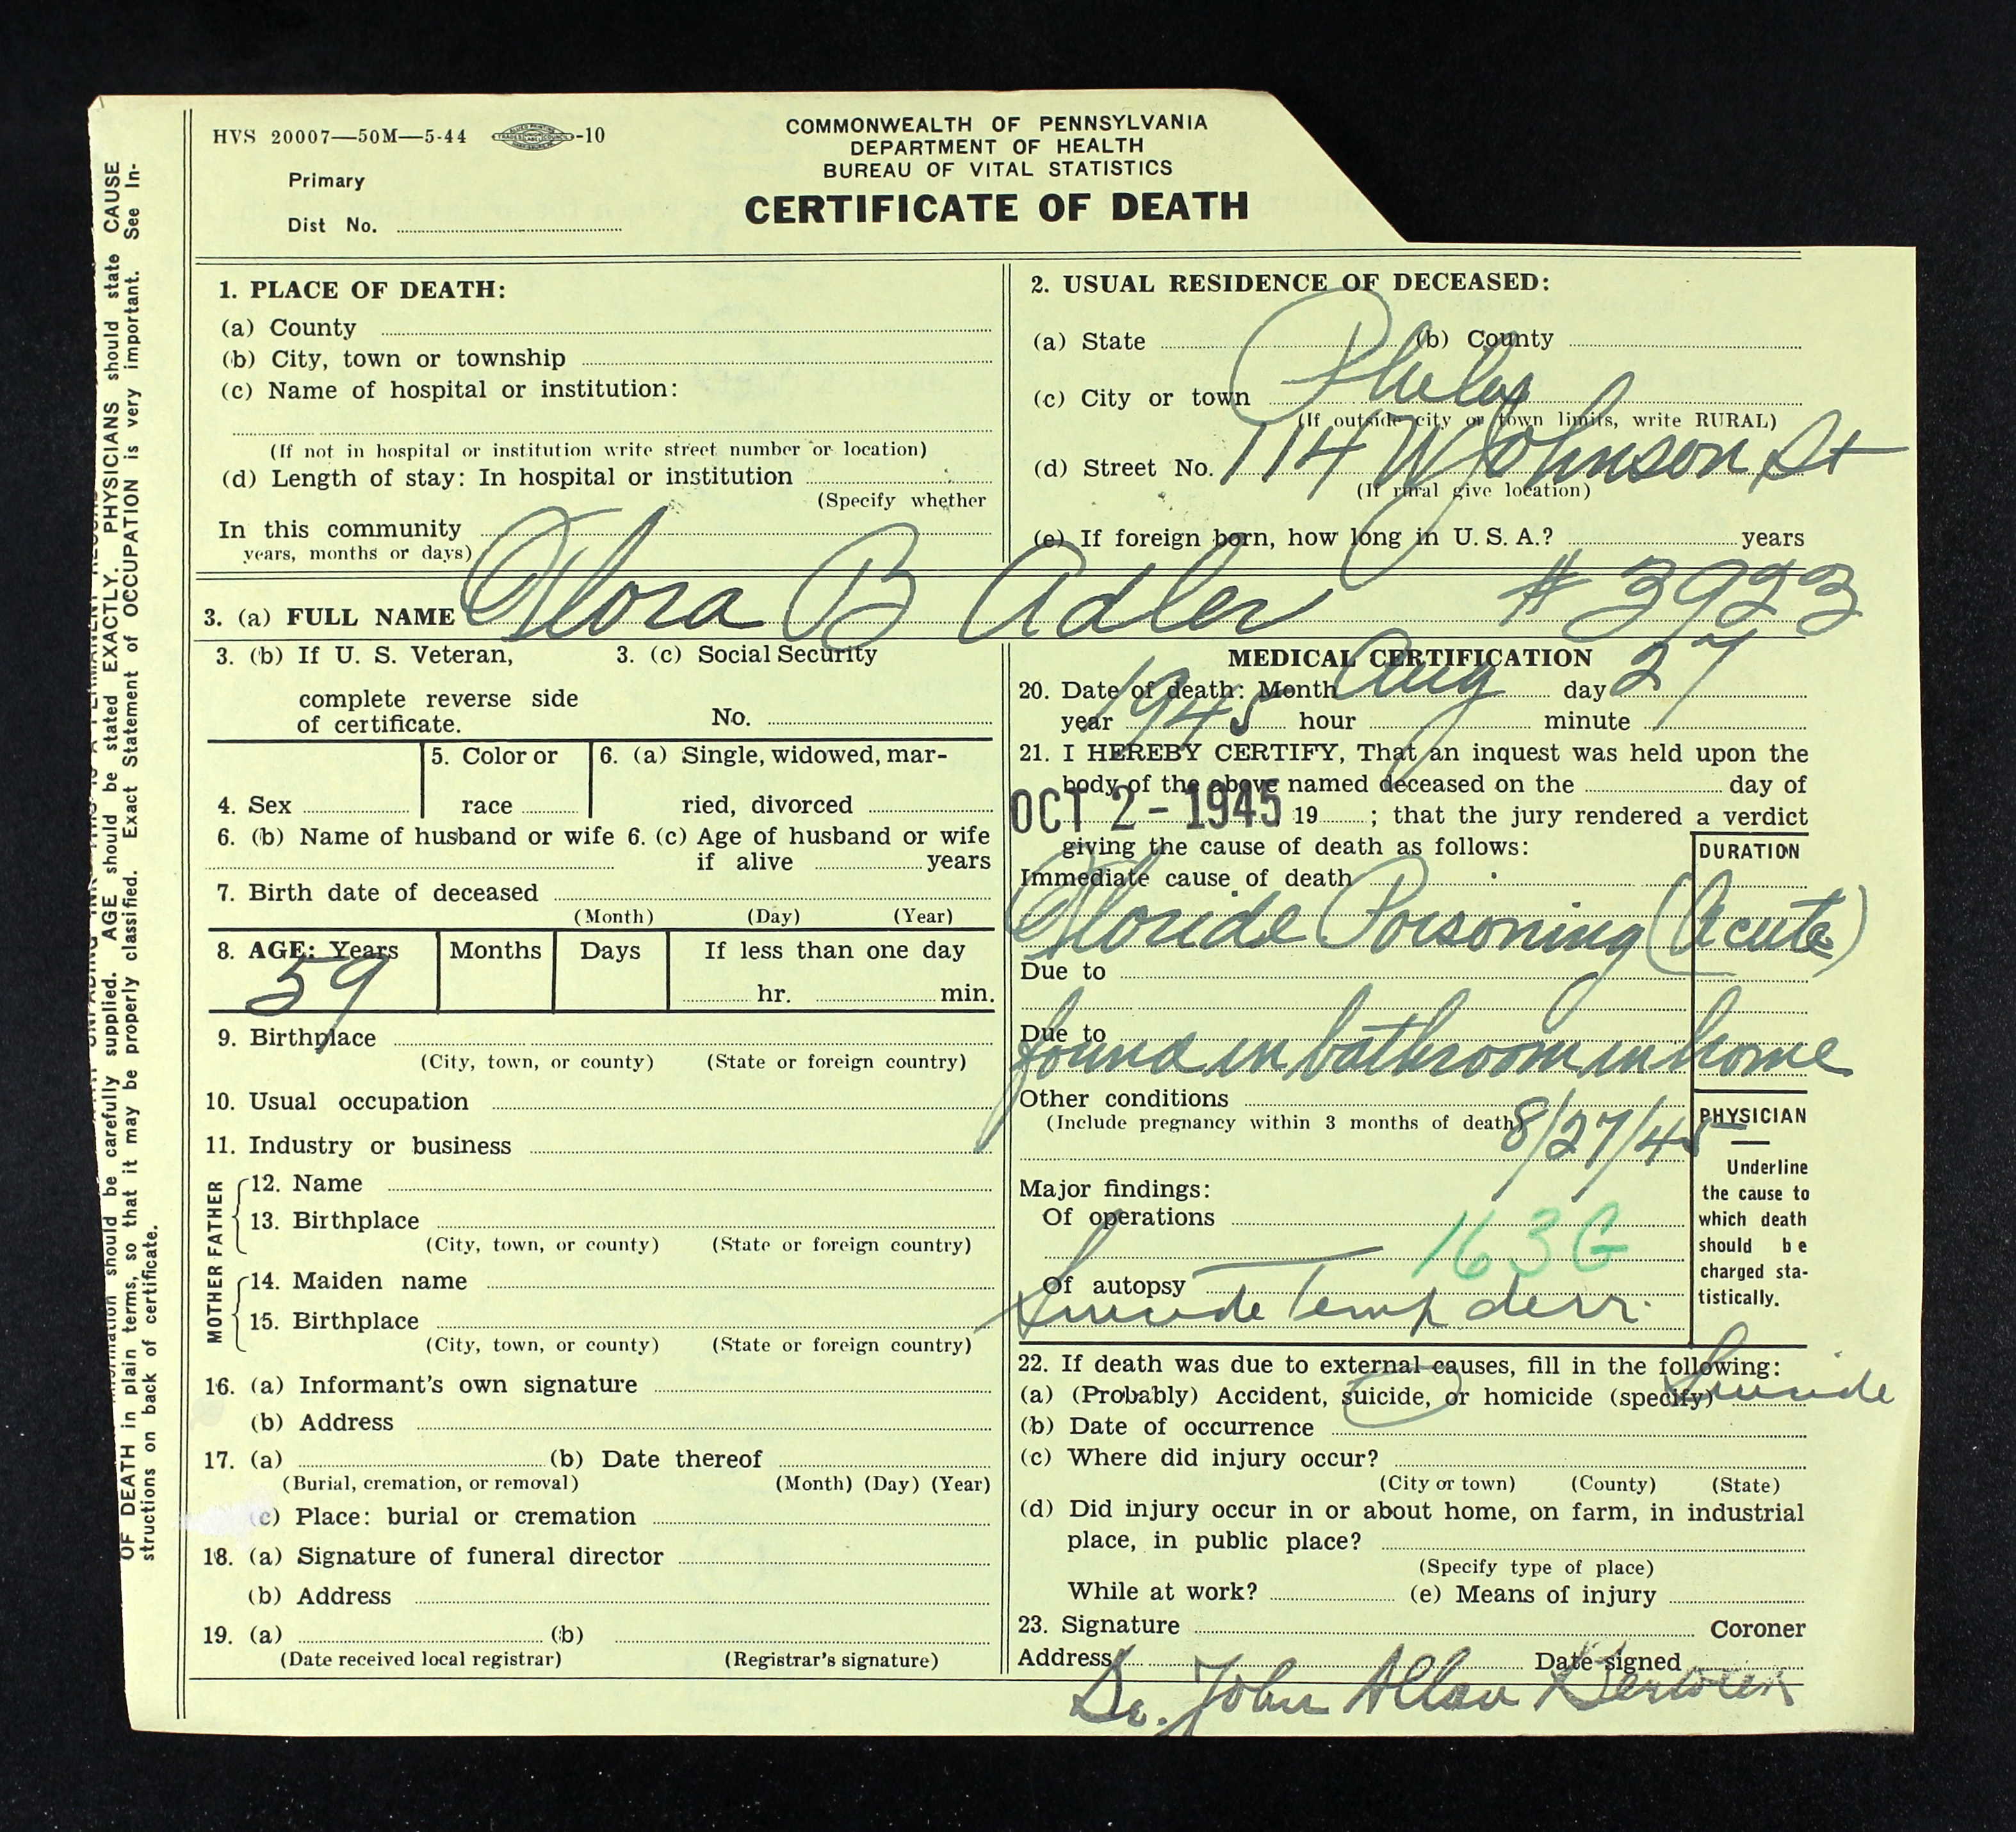 HVS 20007—50M—5-44 -10
COMMONWEALTH OF PENNSYLVANIA
DEPARTMENT OF HEALTH
BUREAU OF VITAL STATISTICS
CERTIFICATE OF DEATH
Primary
Dist No.
1. PLACE OF DEATH:
(a) County
(b) City, town or township
(c) Name of hospital or institution:
(If not in hospital or institution write street number or location)
(d) Length of stay: In hospital or institution
(Specify whether
In this community
years, months or days)
2. USUAL RESIDENCE OF DECEASED:
(a) State (b) County
(c) City or town Phila
(If outside city or town limits, write RURAL)
(d) Street No. 114 W Johnson St
(If rural give location)
(e) If foreign born, how long in U. S. A.? years
3. (a) FULL NAME Flora B Adler # 3923
3. (b) If U. S. Veteran,
complete reverse side
of certificate.
3. (c) Social Security
No.
4. Sex
5. Color or
race
6. (a) Single, widowed, mar-
ried, divorced
6. (b) Name of husband or wife
6. (c) Age of husband or wife
if alive years
7. Birth date of deceased
(Month) (Day) (Year)
8. AGE: Years Months Days If less than one day
59 hr. min.
9. Birthplace
(City, town, or county) (State or foreign country)
10. Usual occupation
11. Industry or business
FATHER
12. Name
13. Birthplace
(City, town, or county) (State or foreign country)
MOTHER
14. Maiden name
15. Birthplace
(City, town, or county) (State or foreign country)
16. (a) Informant's own signature
(b) Address
17. (a) (b) Date thereof
(Burial, cremation, or removal) (Month) (Day) (Year)
(c) Place: burial or cremation
18. (a) Signature of funeral director
(b) Address
19. (a) (b)
(Date received local registrar) (Registrar's signature)
MEDICAL CERTIFICATION
20. Date of death: Month Aug day 27
year 1945 hour minute
21. I HEREBY CERTIFY, That an inquest was held upon the
body of the above named deceased on the day of
OCT 2 - 1945 19 ; that the jury rendered a verdict
giving the cause of death as follows:
DURATION
Immediate cause of death
Floride Poisoning (Acute)
Due to
Due to
found in bathroom in home
Other conditions
(Include pregnancy within 3 months of death)
8/27/45
Major findings:
Of operations
163G
Of autopsy
Suicide Temp derr.
PHYSICIAN
Underline
the cause to
which death
should be
charged sta-
tistically.
22. If death was due to external causes, fill in the following:
(a) (Probably) Accident, suicide, or homicide (specify) Suicide
(b) Date of occurrence
(c) Where did injury occur?
(City or town) (County) (State)
(d) Did injury occur in or about home, on farm, in industrial
place, in public place?
(Specify type of place)
While at work? (e) Means of injury
23. Signature Coroner
Address Date signed
Dr. John Allan
should be carefully supplied. AGE should be stated EXACTLY. PHYSICIANS should state CAUSE
OF DEATH in plain terms, so that it may be properly classified. Exact Statement of OCCUPATION is very important. See In-
structions on back of certificate.